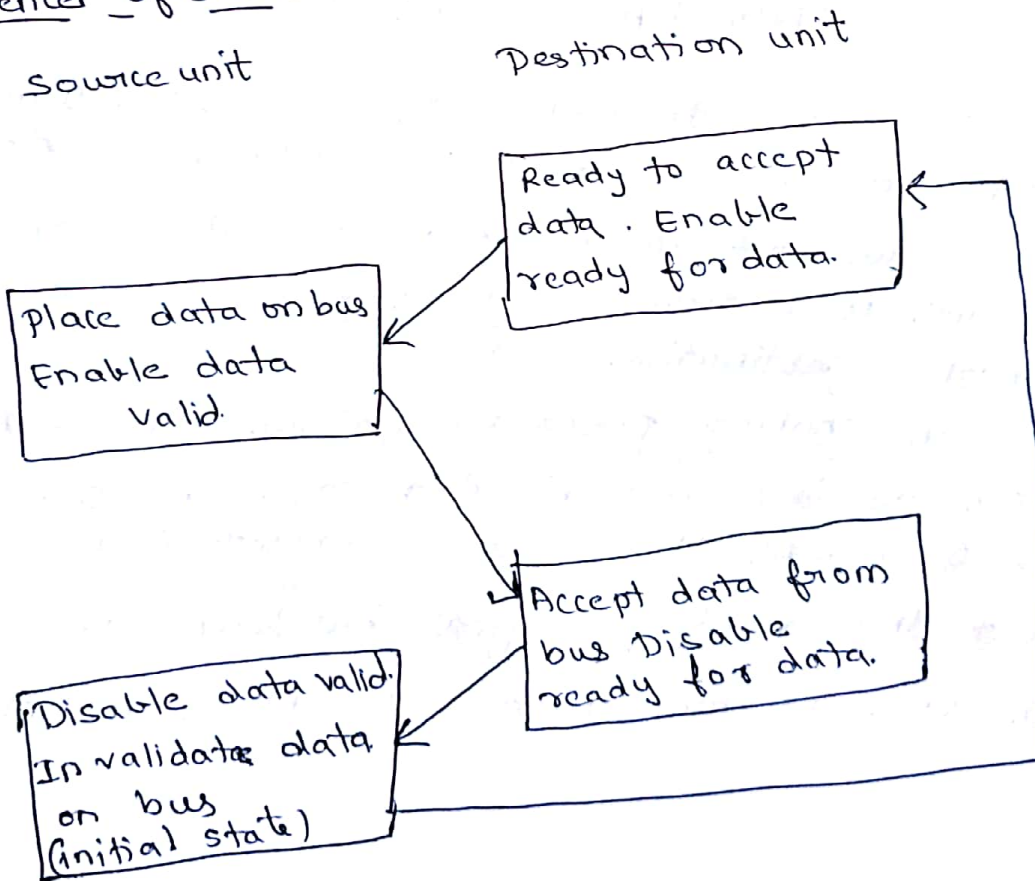 Source unit
Destination unit
Ready to accept
data. Enable
ready for data.
Place data on bus
Enable data
valid.
Accept data from
bus Disable
ready for data.
Disable data valid.
Invalidate data
on bus
(initial state)